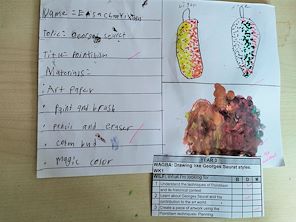 Name:-
Topic:- Georges seurat
Title:- Pointillism
Materials:-
• Art Paper
• paint and brush
• pencil and eraser
• cotm bud
• magic color
YEAR 5
WAGBA: Drawing like Georges Seurat styles.
WK1
WILF: What I'm looking for:
B D M
1 Understand the techniques of Pointillism and its historical context
2 Learn about Georges Seurat and his contribution to the art world
3 Create a piece of artwork using the Pointillism techniques: Planning